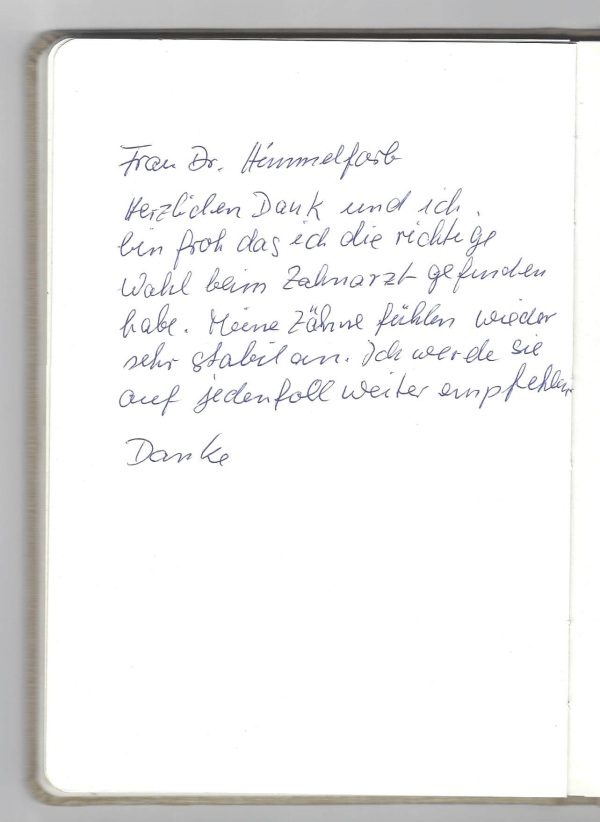 Frau Dr. Himmelfarb
Herzlichen Dank und ich
bin froh das ich die richtige
Wahl beim Zahnarzt gefunden
habe. Meine Zähne fühlen wieder
sehr stabil an. Ich werde sie
auf jedenfall weiter empfehlen
Danke